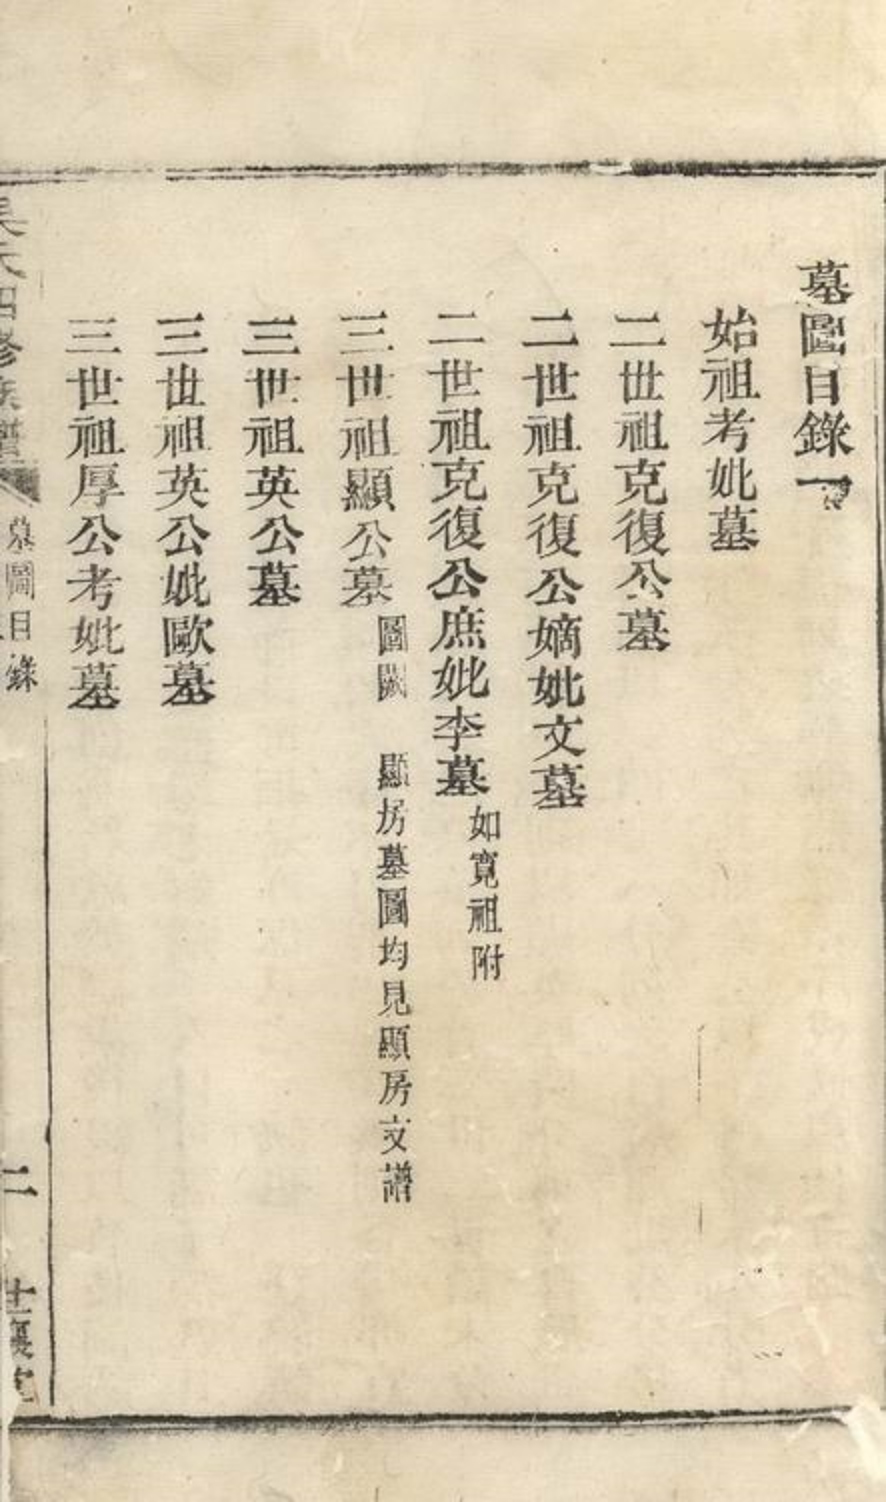 墓圖目錄一
始祖考妣墓
二世祖克復公墓
二世祖克復公嫡妣文墓
二世祖克復公庶妣李墓 如寬祖附
三世祖顯公墓 圖闕 顯房墓圖均見顯房支譜
三世祖英公墓
三世祖英公妣歐墓
三世祖厚公考妣墓
吳氏四修族譜
墓圖目錄
二